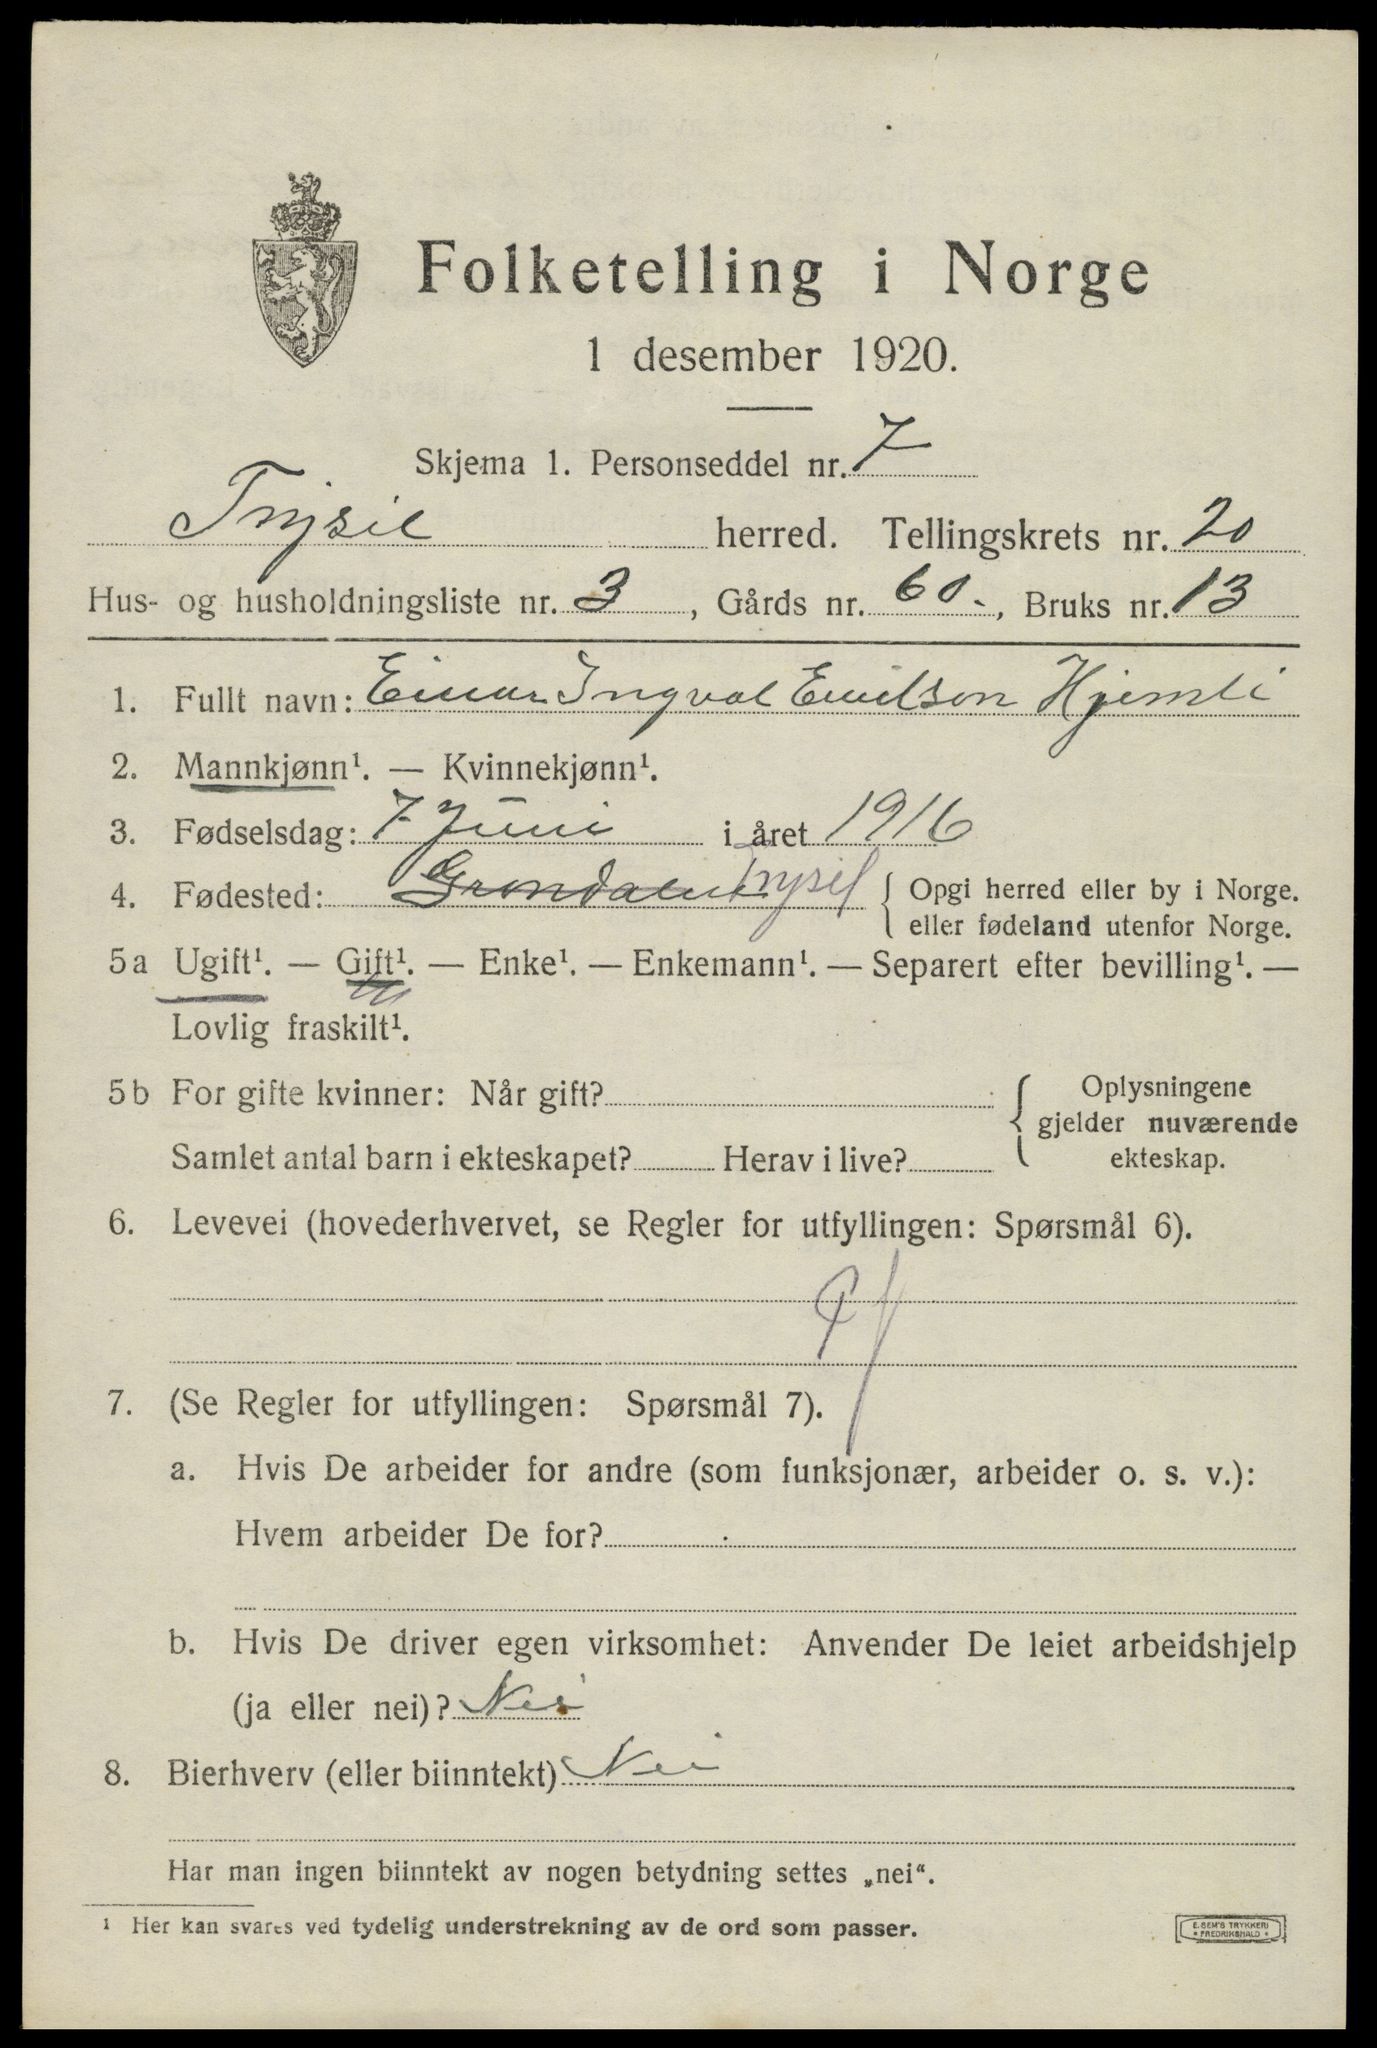 Folketelling i Norge
1 desember 1920.
Skjema 1. Personseddel nr. 7
Trysil herred. Tellingskrets nr. 20
Hus- og husholdningsliste nr. 3, Gårds nr. 60-, Bruks nr. 13
1. Fullt navn: Einar Ingval Emilson Hjemli
2. Mannkjønn¹. — Kvinnekjønn¹.
3. Fødselsdag: 7 Juni i året 1916
4. Fødested: Trysil { Opgi herred eller by i Norge.
eller fødeland utenfor Norge.
5a Ugift¹. — Gift¹. — Enke¹. — Enkemann¹. — Separert efter bevilling¹. —
Lovlig fraskilt¹.
5b For gifte kvinner: Når gift? { Oplysningene
gjelder nuværende
Samlet antal barn i ekteskapet? Herav i live? ekteskap.
6. Levevei (hovederhvervet, se Regler for utfyllingen: Spørsmål 6).
7. (Se Regler for utfyllingen: Spørsmål 7).
a. Hvis De arbeider for andre (som funksjonær, arbeider o. s. v.):
Hvem arbeider De for?
b. Hvis De driver egen virksomhet: Anvender De leiet arbeidshjelp
(ja eller nei)? Nei
8. Bierhverv (eller biinntekt) Nei
Har man ingen biinntekt av nogen betydning settes „nei“.
¹ Her kan svares ved tydelig understrekning av de ord som passer.
E. SEM'S TRYKKERI
* FREDRIKSHALD *